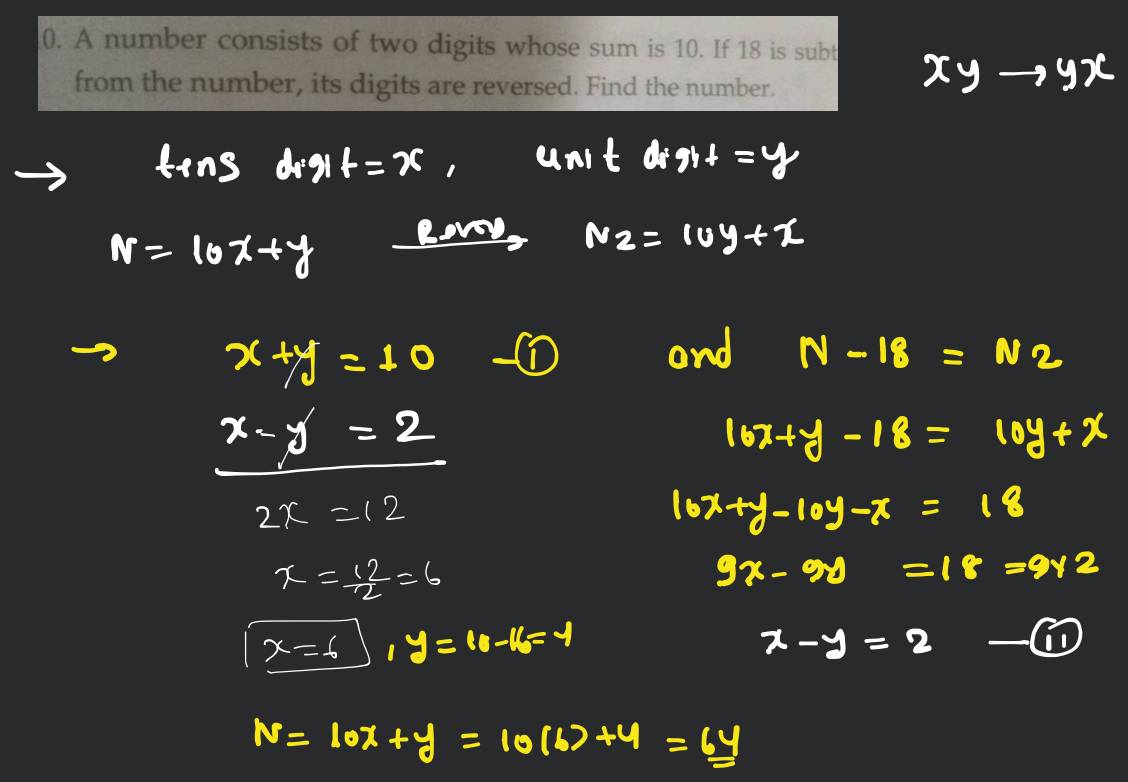 0. A number consists of two digits whose sum is 10. If 18 is subt
from the number, its digits are reversed. Find the number.
xy → yx
→ tens digit = x, unit digit = y
N = 10x+y N2 = 10y+x
→ x+y = 10 —(i) and N - 18 = N2
x-y = 2 10x+y - 18 = 10y+x
2x = 12 10x+y-10y-x = 18
x = 12/2 = 6 9x - 9y = 18 = 9×2
x=6 , y = 10-6 = 4 x-y = 2 —(ii)
N = 10x+y = 10(6)+4 = 64